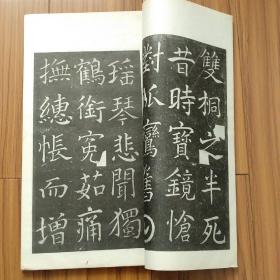 雙桐之半死
昔時寶鏡愴
對孤鸞舊
瑶琴悲聞獨
鶴銜寃茹痛
撫繐帳而增